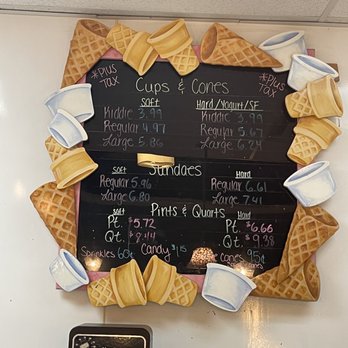 *Plus TAX
*Plus TAX
Cups & Cones
Soft
Kiddie 3.99
Regular 4.97
Large 5.86
Hard/Yogurt/SF
Kiddie 3.99
Regular 5.67
Large 6.74
Sundaes
Soft
Regular 5.96
Large 6.80
Hard
Regular 6.61
Large 7.41
Pints & Quarts
Soft
Pt. $5.72
Qt.
Hard
Pt. $6.66
Qt. $9.38
Sprinkles 60¢
Candy $1.15
Cones 95¢